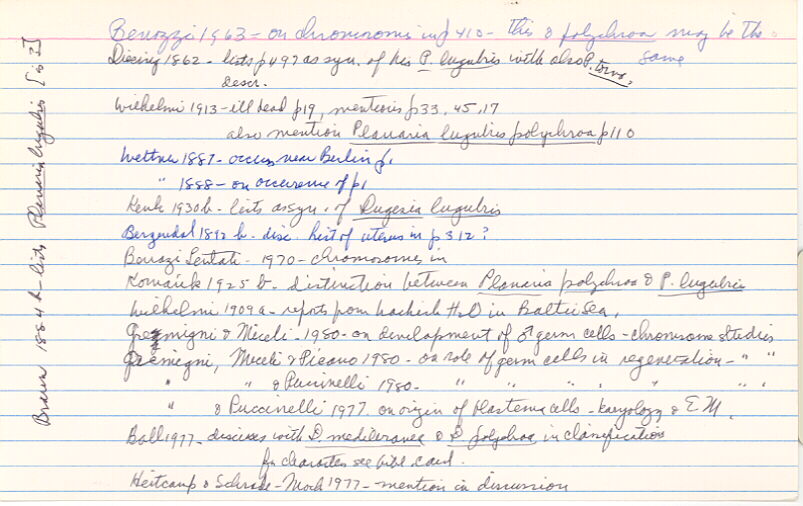 Benazzi 1963 - on chromosomes in p 410 - this & polychroa may be the same
Diesing 1862 - lists p 497 as syn. of his P. lugubris with also P. torva.
descr.
Wilhelmi 1913 - ill dead p 19, mentions p 33, 45, 17
also mention Planaria lugubris polychroa p 110
Weltner 1887 - occurs near Berlin p.
" 1888 - on occurence of p 1
Kenk 1930 b. - lists as syn. of Dugesia lugubris
Bergendal 1892 b - disc. hist of uterus in p 312?
Benazzi Lentati - 1970 - chromosomes in
Komárek 1925 b. - distinction between Planaria polychroa & P. lugubris
Wilhelmi 1909a - reports from brackish H2O in Baltic Sea.
Gremigni & Miceli - 1980 - on development of ♂ germ cells - chromosome studies
Gremigni, Miceli & Picano 1980 - on role of germ cells in regeneration - " "
" " & Puccinelli 1980 - " " " " " " "
" & Puccinelli 1977. on origin of blastema cells - karyology & E M.
Ball 1977 - discuses with D. mediterranea & D. polychroa in classification
for characters see bibl. card.
Heitcamp & Schrade - Mock 1977 - mention in discussion
Braun 1884 b - lists Planaria lugubris